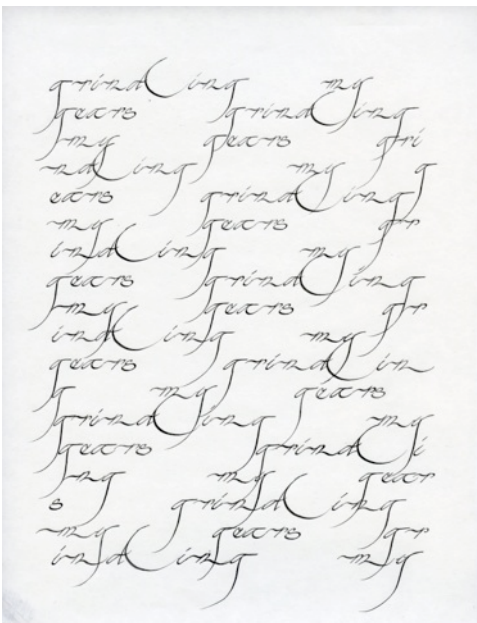 grinding my
gears grinding
my gears gri
nding my g
ears grinding
my gears gr
inding my
gears grinding
my gears gr
inding my
gears grindin
g my gears
grinding my
gears grindi
ng my gear
s grinding
my gears gr
inding my